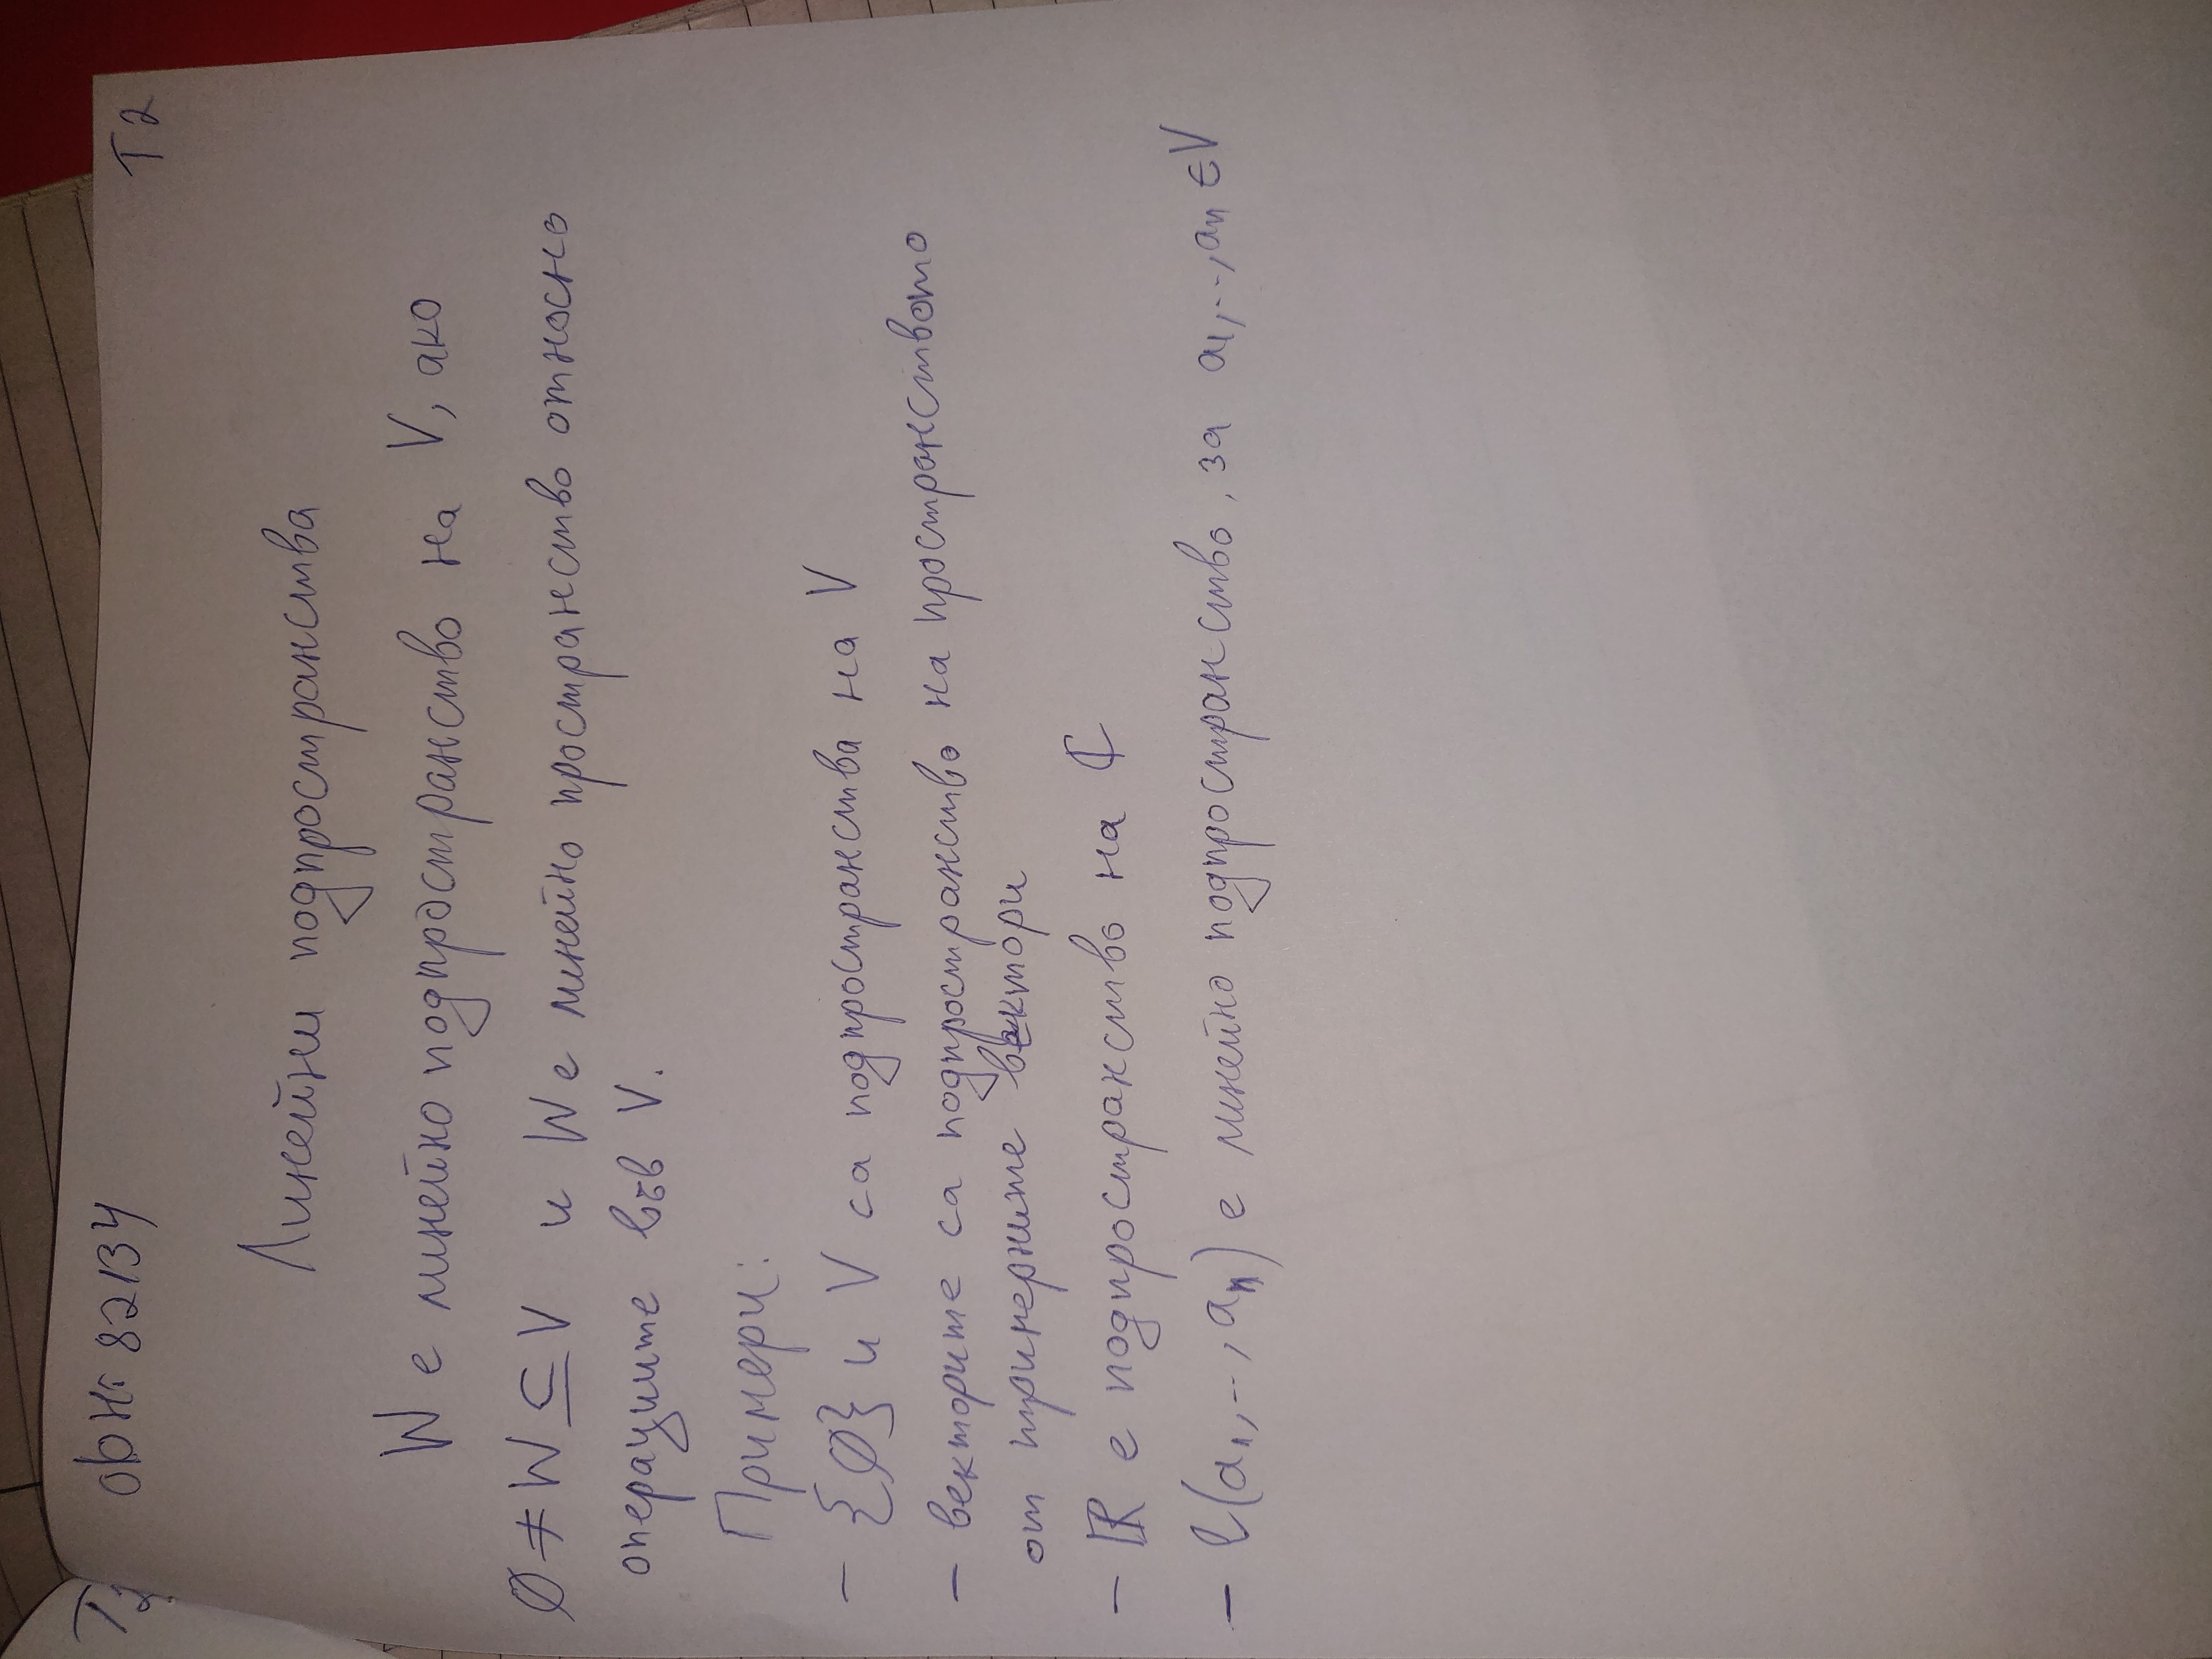 T2
ФН: 82134
T2
Линейни подпространства
W е линейно подпространство на V, ако
∅ ≠ W ⊆ V и W е линейно пространство относно
операциите във V.
Примери:
- {∅} и V са подпространства на V
- векторите са подпространство на пространството
от тримерните вектори
- ℝ е подпространство на ℂ
- ℓ(a₁,..,aₙ) е линейно подпространство, за a₁,..,aₙ ∈ V